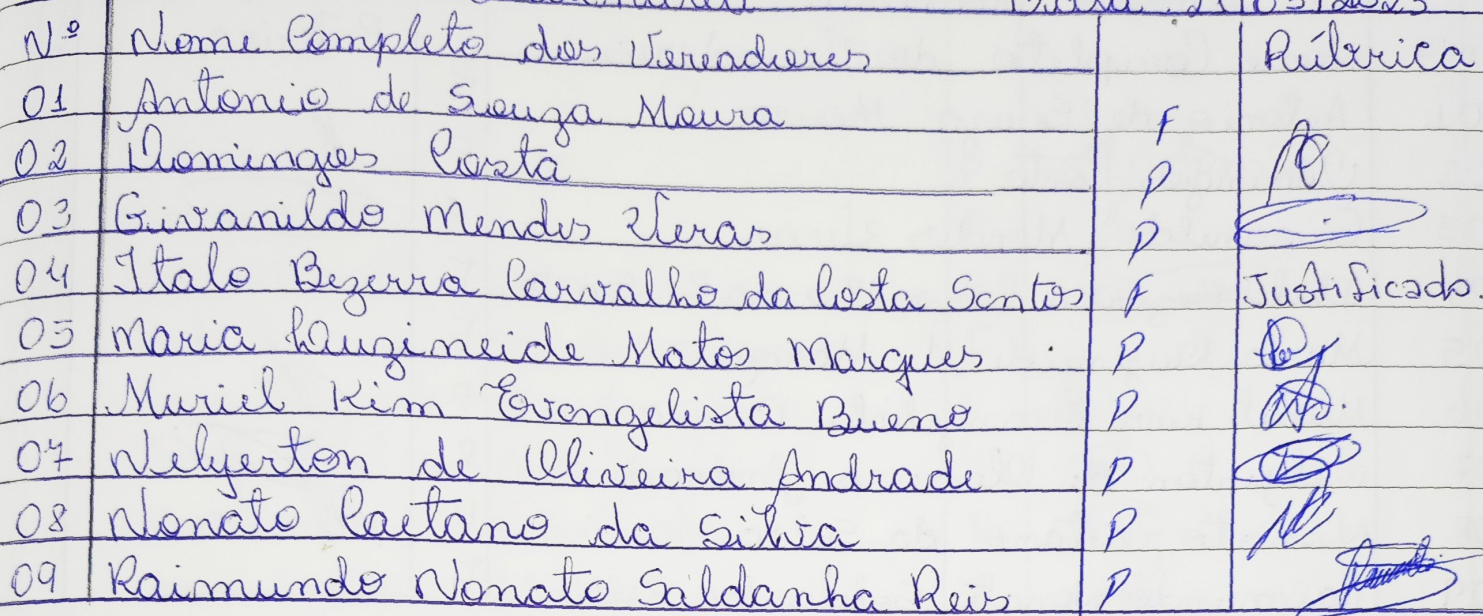 Nº Nome Completo dos Vereadores Rúbrica
01 Antonio de Souza Moura F
02 Domingos Costa P
03 Givanildo Mendes Veras P
04 Italo Bezerra Carvalho da Costa Santos F Justificado.
05 Maria Luzineide Matos Marques P
06 Muriel Kim Evangelista Bueno P
07 Nelyerton de Oliveira Andrade P
08 Nonato Caetano da Silva P
09 Raimundo Nonato Saldanha Reis P